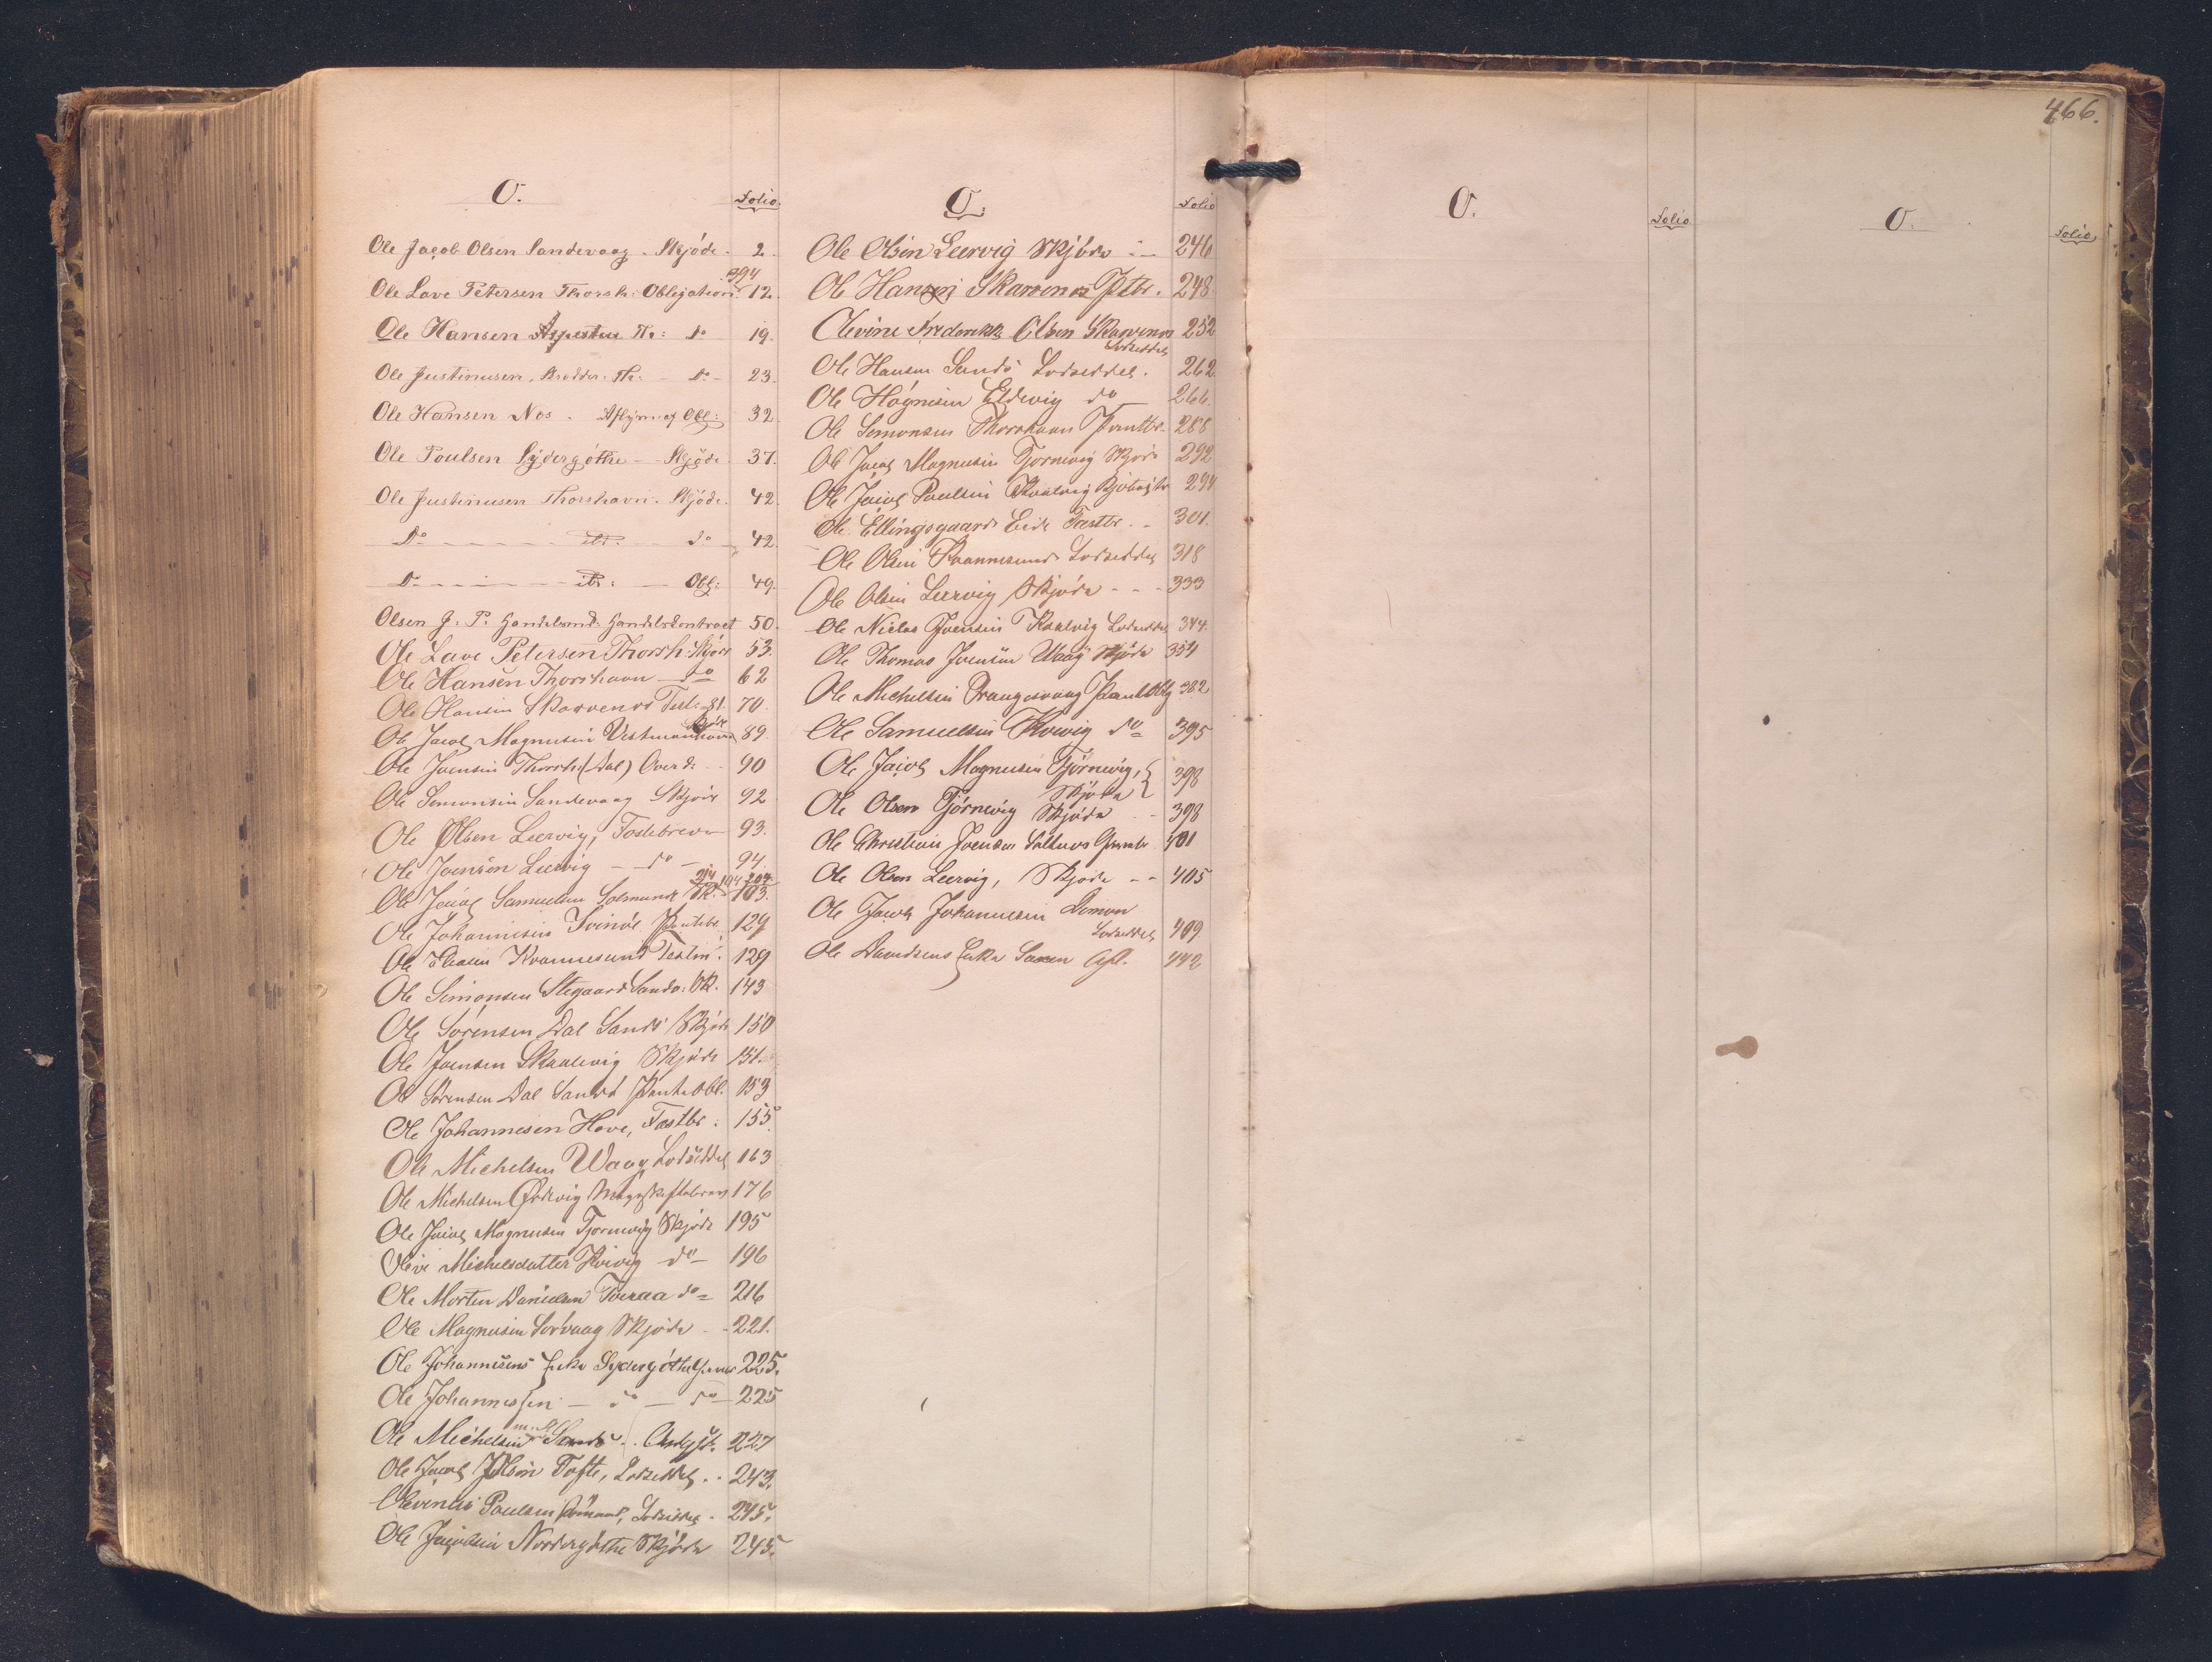 O.
Folio.
Ole Jacob Olsen Sandevaag - Skjöde - 2.
394
Ole Lave Petersen Thorsh: Obligation. 12.
Ole Hansen Th: do 19.
Ole Justinusen, Th. - do - 23.
Ole Hansen Nos - Aflysn: af Obl: 32.
Ole Poulsen Sydergöthe - Skjöde 37.
Ole Justinusen Thorshavn. Skjöde. 42.
do - - - - do 42.
do - - - - Obl: 49.
Olsen J. P. Handelsmd. Handelskontract 50.
Ole Lave Petersen Thorsh: Skjöde 53.
Ole Hansen Thorshavn - do 62
Ole Hansen Skarvenes 81. 70.
Skjöde
Ole Jacob Magnusen Vestmanhavn 89.
Ole Joensen Thorsh: (Dal) Overd: - 90
Ole Simonsen Sandevaag Skjöde 92
Ole Olsen Leervig, Festebrev - 93.
Ole Joensen Leervig - do - 94.
214 194 204
Ole Jacob Samuelsen Solmunde Sk. 103.
Ole Johannesen Svinöe Pantebr. 129
Ole Kvannesund Testm: 129
Ole Simonsen Stegaard Sandö: Sk. 143
Ole Sörensen Dal Sandö Skjöde 150
Ole Joensen Skaalevig Skjöde 151.
Ole Sörensen Dal Sandö Panteobl. 153
Ole Johannesen Hove, Fæstbr: 155.
Ole Michelsen Waag Lodseddel 163
Ole Michelsen Ördevig Mageskiftebrev 176
Ole Jacob Magnusen Tjörnevig Skjöde 195
Olive Michelsdatter Hvivig do - 196
Ole Morten Danielsen Tveraa do - 216
Ole Magnusen Sörvaag Skjöde - - 221.
Ole Johannesens Enke Sydergöthe 225.
Ole Johannessen - do - do - 225
Ole Michelsen Sandö - 227
Ole Jacob Olsen Tofte, Lodseddel - - 243.
Olevinus Poulsen Lodseddel - 245.
Ole Jacobsen Nordergöthe Skjöde 245.
O.
Folio
Ole Olsen Leervig Skjöde - - 246
Ole Hansen Skarvenes Ptbr. 248
Olevine Frederikke Olsen Skarvenes 252
Lodseddel
Ole Hansen Sandö Lodseddel. 262.
Ole Högnesen Eldevig do - 266.
Ole Simonsen Thorshavn Pantbr. 288
Ole Jacob Magnusen Tjörnevig Skjöde 292
Ole Jacob Poulsen Skaalevig 294
Ole Ellingsgaard Eide Fæstbr. - 301.
Ole Olsen Kvannesund Lodseddel 318
Ole Olsen Leervig Skjöde - - - 333
Ole Niclas Joensen Skaalvig Lodseddel 344.
Ole Thomas Joensen Waag Skjöde 354
Ole Michelsen Trangisvaag PantObl 382
Ole Samuelsen Hvivig do - 395
Ole Jacob Magnusen Tjörnevig, 398
Skjöde
Ole Olsen Tjörnevig Skjöde - - 398
Ole Christian Joensen Saltnes 401
Ole Olsen Leervig, Skjöde - - 405
Ole Jacob Johannesen Dimon
Lodseddel 409
Ole Davidsens Enke Saxen Afl. 442
O.
Folio
466.
O.
Folio